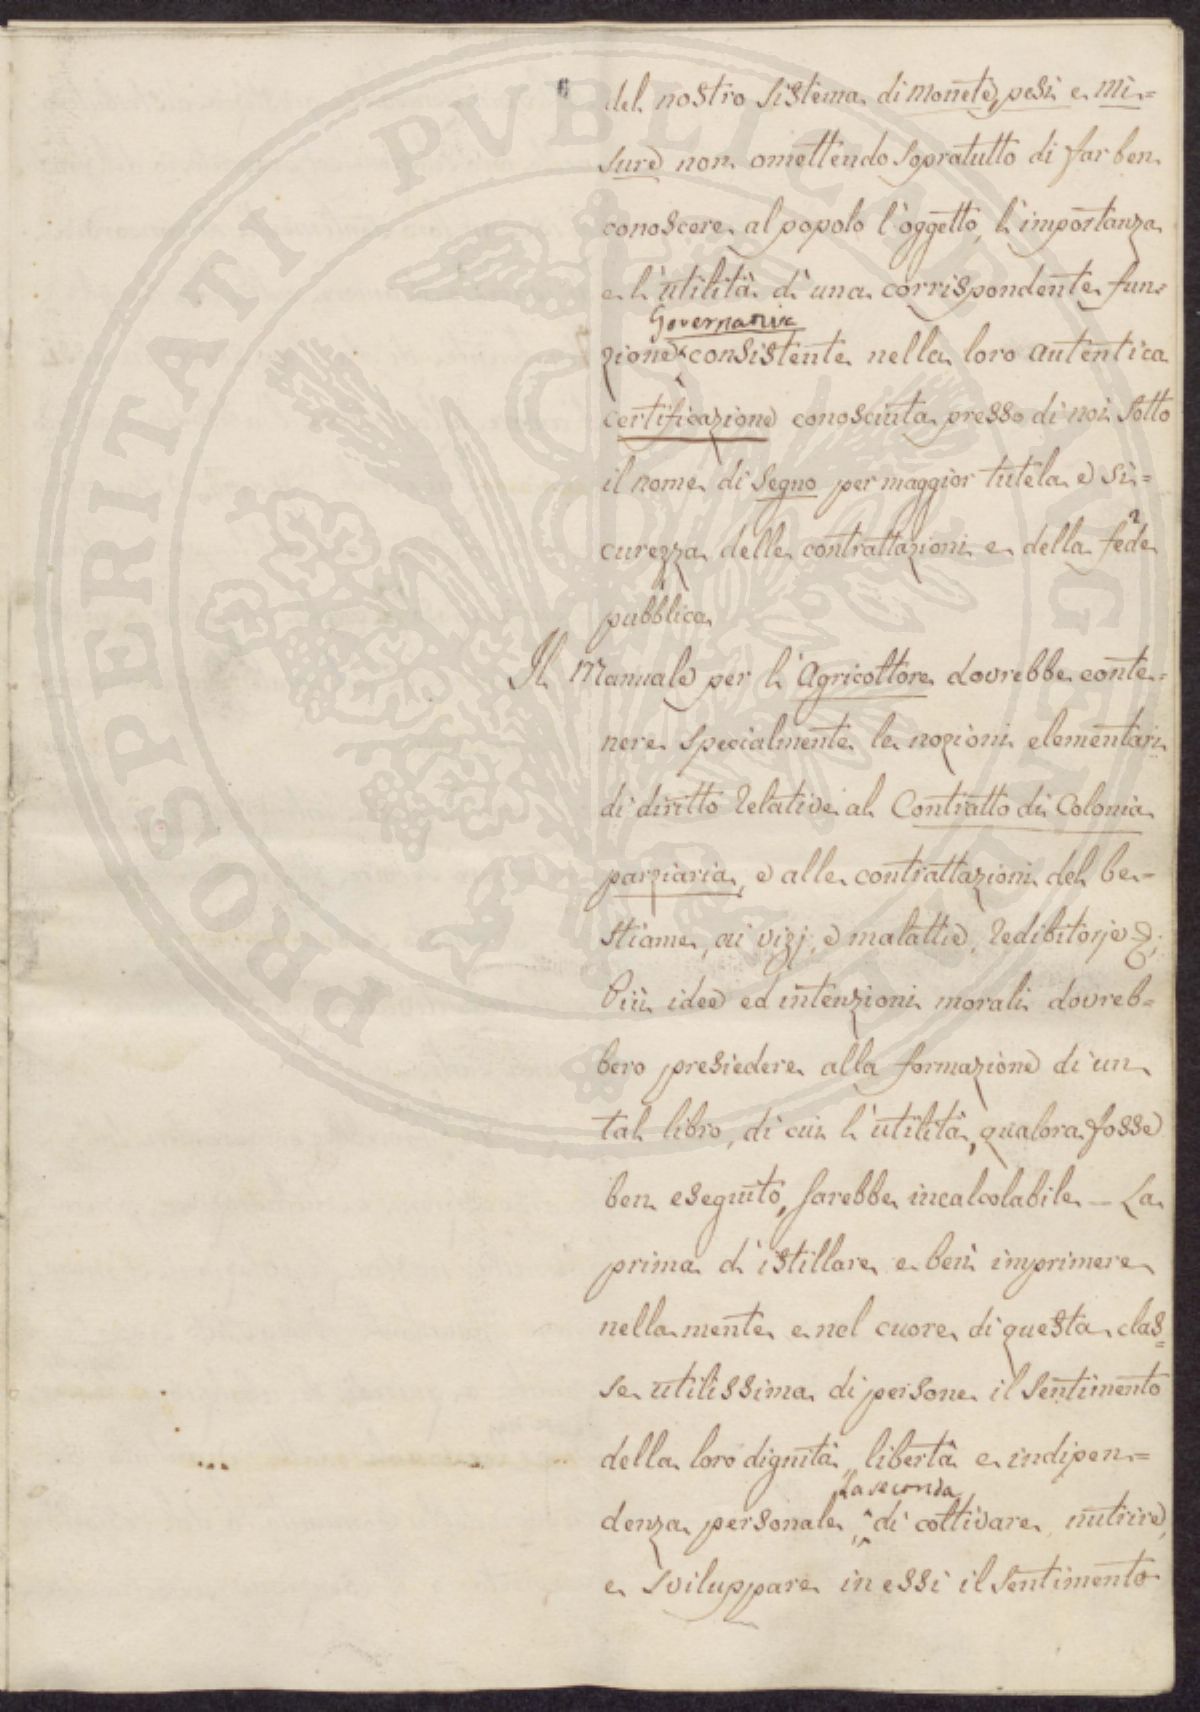 del nostro sistema di monete, pesi e mi=
sure non omettendo sopratutto di far ben
conoscere al popolo l'oggetto, l'importanza
e l'utilità d'una corrispondente fun=
Governativa
zione consistente nella loro autentica
certificazione conosciuta presso di noi sotto
il nome di Segno per maggior tutela e si=
curezza delle contrattazioni e della fede
pubblica
Il Manuale per l'Agricoltore dovrebbe conte=
nere specialmente le nozioni elementari
di diritto relative al Contratto di Colonia
parziaria, e alle contrattazioni del be=
stiame, ai vizj, e malattie, redibitorje &;
Più idee ed intenzioni morali dovreb=
bero presiedere alla formazione di un
tal libro, di cui l'utilità, qualora fosse
ben eseguito, sarebbe incalcolabile — La
prima d'istillare e ben imprimere
nella mente e nel cuore di questa clas=
se utilissima di persone il sentimento
della loro dignità, libertà e indipen=
La seconda
denza personale, di coltivare, nutrire,
e sviluppare in essi il sentimento
PROSPERITATI PVBLICAE AVGENDAE